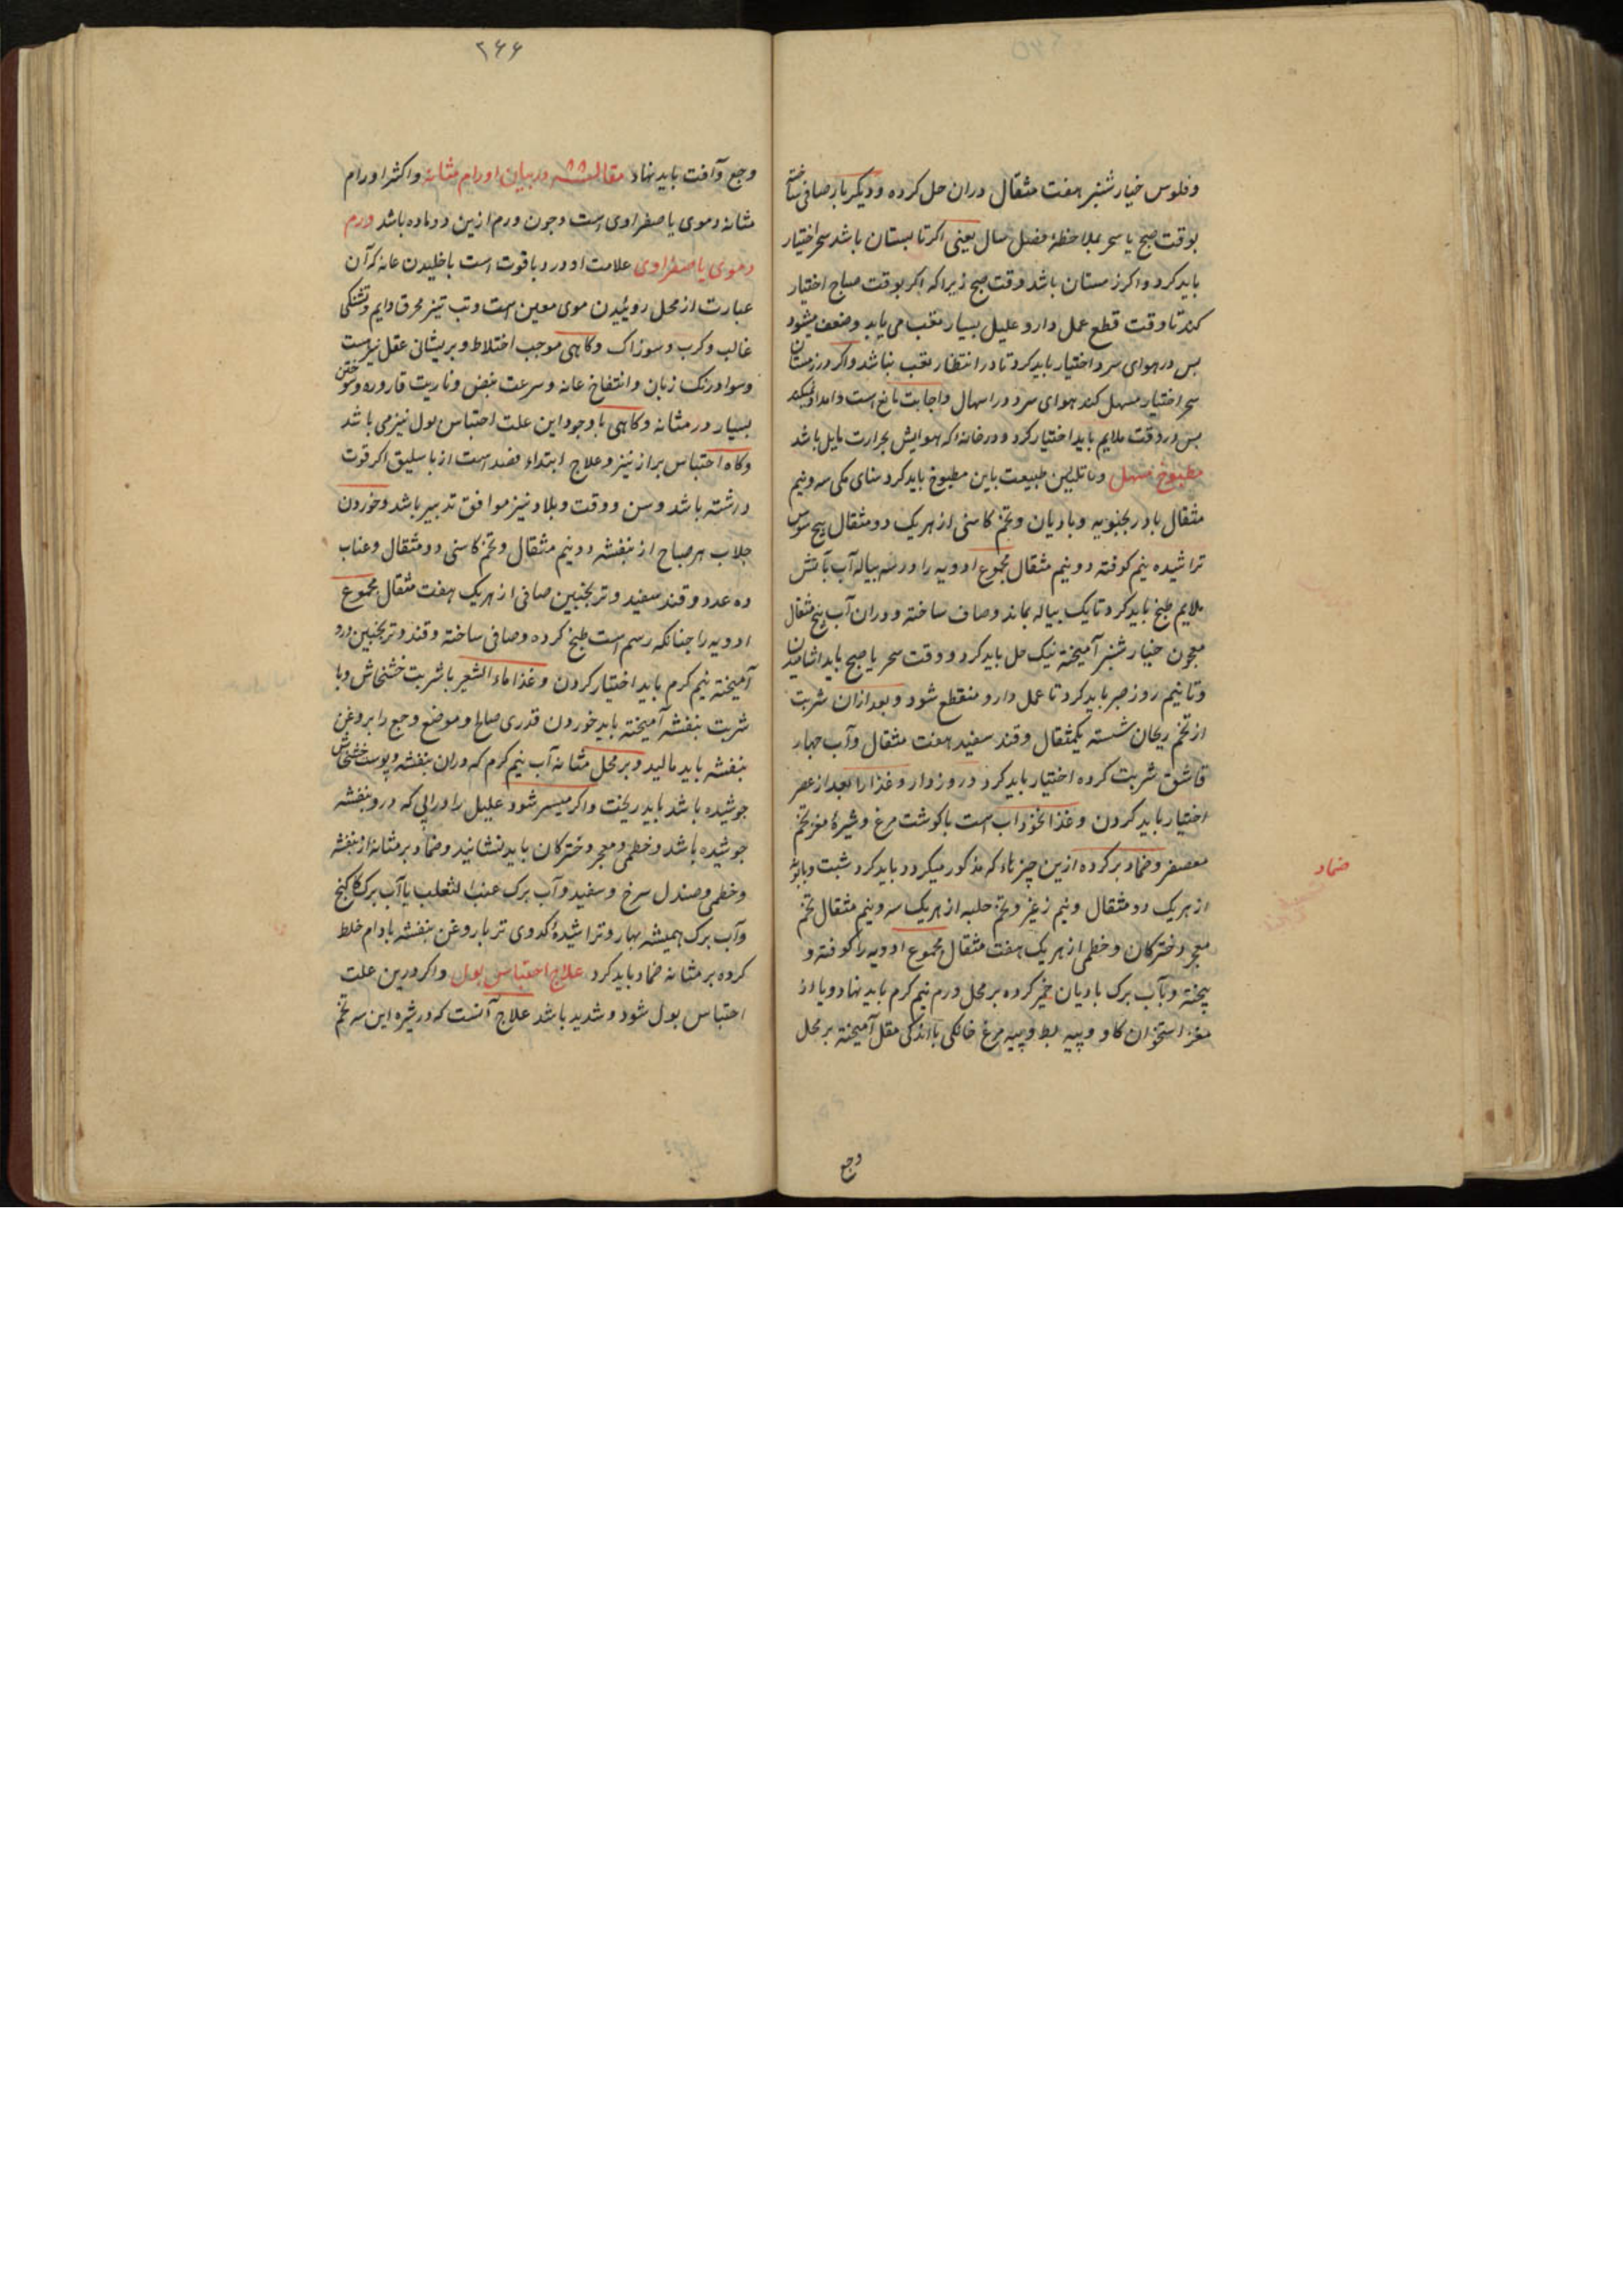 وفلوس خیار شنبر هفت مثقال دران حل کرده ودیکر بار صافی ساخته
بوقت صبح یا سحر بملاحظهٔ فصل سال یعنی اکر تابستان باشد سحر اختیار
باید کرد واکر زمستان باشد وقت صبح زیراکه اکر بوقت صباح اختیار
کند تا وقت قطع عمل دارو علیل بسیار تعب می یابد وضعف میشود
بس در هوای سرد اختیار باید کرد تا در انتظار تعب نباشد واکر در زمستان
سحر اختیار مسهل کند هوای سرد در اسهال واجابت مانع است وامداد نمیکند
بس در وقت ملایم باید اختیار کرد ودر خانه که هوایش بحرارت مایل باشد
مطبوخ مسهل وتلیین طبیعت باین مطبوخ باید کرد سنای مکی سه ونیم
مثقال بادرنجبویه وبادیان وتخم کاسنی از هریک دو مثقال بیخ سوس
تراشیده نیم کوفته دو نیم مثقال مجموع ادویه را در سه بیاله آب بآتش
ملایم طبخ باید کرد تا یک بیاله بماند وصاف ساخته ودران آب پنج مثقال
معجون خیار شنبر آمیخته نیک حل باید کرد ووقت سحر یا صبح باید اشامیدن
وتا نیم روز صبر باید کرد تا عمل دارو منقطع شود وبعد ازان شربت
از تخم ریحان شسته یکمثقال وقند سفید هفت مثقال وآب چهار
قاشق شربت کرده اختیار باید کرد در روز دارو غذا را بعد از عصر
اختیار باید کردن وغذا نخوداب است با کوشت مرغ وشیرهٔ مغز تخم
معصفر وضماد بر کرده ازین چیزهاء که مذکور میکردد باید کرد شبت وبابونه
از هریک دو مثقال ونیم زغیر وتخم حلبه از هریک سه ونیم مثقال تخم
معجر دخترکان وخطمی از هریک هفت مثقال مجموع ادویه را کوفته و
بیخته وبآب برک بادیان خمیر کرده بر محل ورم نیم کرم باید نهاد ویا از
مغز استخوان کاو وپیه بط وپیه مرغ خانکی با اندکی مقل آمیخته بر محل
ضماد
وجع
۲۶۶
وجع وآفت باید نهاد مقاله در بیان اورام مثانه واکثر اورام
مثانه دموی یا صفراوی است وجون ورم ازین دو ماده باشد ورم
دموی یا صفراوی علامت او درد با قوت است با خلیدن عانه که آن
عبارت از محل روئیدن موی معین است وتب تیز محرق دایم وتشنکی
غالب وکرب وسوزاک وکاهی موجب اختلاط وبریشانی عقل نیز است
وسواد رنک زبان وانتفاخ عانه وسرعت نبض وناریت قاروره وسوختن
بسیار در مثانه وکاهی با وجود این علت احتباس بول نیز می باشد
وکاه احتباس براز نیز وعلاج ابتداء فصد است از باسلیق اکر قوت
درشته باشد وسن ووقت وبلاد نیز موافق تدبیر باشد وخوردن
جلاب هر صباح از بنفشه دو نیم مثقال وتخم کاسنی دو مثقال وعناب
ده عدد وقند سفید وترنجبین صافی از هریک هفت مثقال مجموع
ادویه را جنانکه رسم است طبخ کرده وصافی ساخته وقند وترنجبین درو
آمیخته نیم کرم باید اختیار کردن وغذا ماء الشعیر با شربت خشخاش ویا
شربت بنفشه آمیخته باید خوردن قدری صالح وموضع وجع را بروغن
بنفشه باید مالید وبر محل مثانه آب نیم کرم که دران بنفشه وپوست خشخاش
جوشیده باشد باید ریخت واکر میسر شود علیل را در ابی که درو بنفشه
جوشیده باشد وخطمی ومعجر دخترکان باید نشانید وضماد بر مثانه از بنفشه
وخطمی وصندل سرخ وسفید وآب برک عنب الثعلب یا آب برک کاکنج
وآب برک همیشه بهار وتراشیدهٔ کدوی تر با روغن بنفشه بادام خلط
کرده بر مثانه ضماد باید کرد علاج احتباس بول واکر درین علت
احتباس بول شود وشدید باشد علاج آنست که در شیره این سه تخم